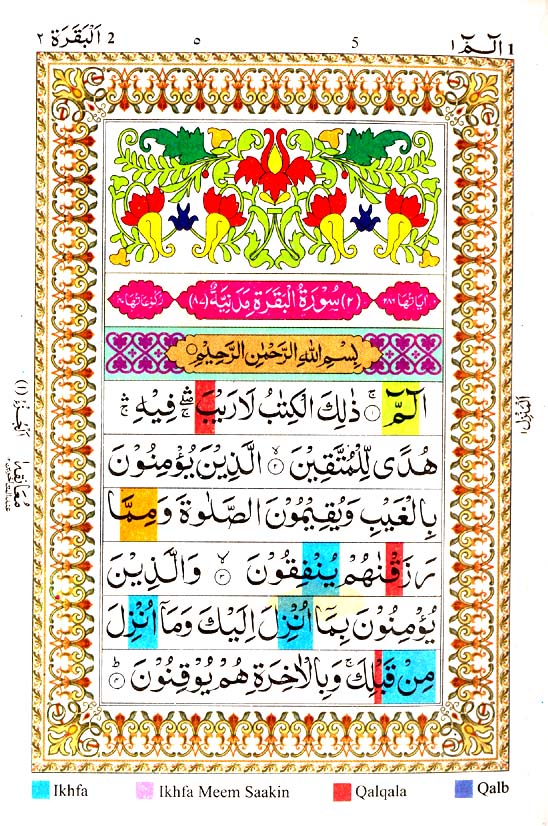 2 اَلْبَقَرَة ٢
٥
5
الٓمّٓ ١ 1
اٰیَاتُهَا ٢٨٦
(٢) سُوْرَةُ الْبَقَرَةِ مَدَنِیَّةٌ (٨٧)
رُكُوْعَاتُهَا ٤٠
بِسْمِ اللّٰهِ الرَّحْمٰنِ الرَّحِیْمِ
الٓمّٓ ۚ﴿١﴾ ذٰلِكَ الْكِتٰبُ لَا رَیْبَ ۛۖۚ فِیْهِ ۛۚ
هُدًی لِّلْمُتَّقِیْنَ ۙ﴿٢﴾ الَّذِیْنَ یُؤْمِنُوْنَ
بِالْغَیْبِ وَیُقِیْمُوْنَ الصَّلٰوةَ وَمِمَّا
رَزَقْنٰهُمْ یُنْفِقُوْنَ ۙ﴿٣﴾ وَالَّذِیْنَ
یُؤْمِنُوْنَ بِمَاۤ اُنْزِلَ اِلَیْكَ وَمَاۤ اُنْزِلَ
مِنْ قَبْلِكَ ۚ وَبِالْاٰخِرَةِ هُمْ یُوْقِنُوْنَ ؕ﴿٤﴾
اَلْمَنْزِل ١
اَلْجُزْءُ (١)
معانقة ١
Ikhfa
Ikhfa Meem Saakin
Qalqala
Qalb